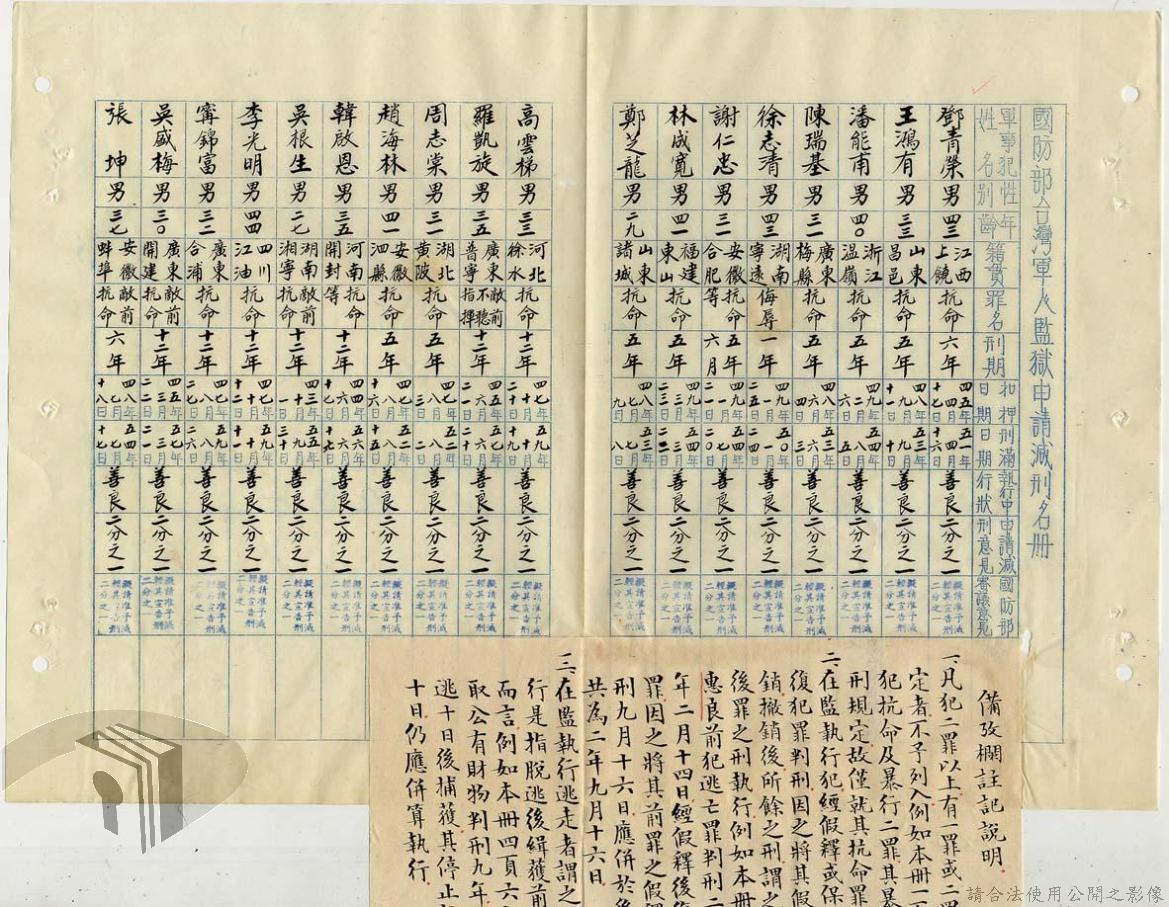 國防部台灣軍人監獄申請減刑名冊
軍事犯姓名 性別 年齡 籍貫 罪名 刑期 扣押日期 刑滿日期 執行中行狀 申請減刑意見 國防部審議意見
鄧青榮 男 四三 江西上饒 抗命 六年 四五年四月十七日 五一年四月十六日 善良 二分之一
王鴻有 男 三三 山東昌邑 抗命 五年 善良 二分之一 擬請准予減輕其宣告刑二分之一
潘能甫 男 四〇 浙江溫嶺 抗命 五年 四九年八月六日 五四年八月五日 善良 二分之一 擬請准予減輕其宣告刑二分之一
陳瑞基 男 三二 廣東梅縣 抗命 五年 四八年六月四日 五三年六月三日 善良 二分之一 擬請准予減輕其宣告刑二分之一
徐志清 男 四三 湖南寧遠 侮辱 一年 四九年一月五日 五〇年一月四日 善良 二分之一 擬請准予減輕其宣告刑二分之一
謝仁忠 男 三一 安徽合肥 抗命等 五年六月 四九年一月二一日 五四年七月二〇日 善良 二分之一 擬請准予減輕其宣告刑二分之一
林成寬 男 四一 福建東山 抗命 五年 四九年三月二三日 五四年三月二二日 善良 二分之一 擬請准予減輕其宣告刑二分之一
鄭芝龍 男 二九 山東諸城 抗命 五年 四八年七月九日 五三年七月八日 善良 二分之一 擬請准予減輕其宣告刑二分之一
高雲梯 男 三三 河北徐水 抗命 十二年 四七年十月二十日 五九年十月十九日 善良 二分之一 擬請准予減輕其宣告刑二分之一
羅凱旋 男 三五 廣東普寧 敵前不聽指揮 十二年 善良 二分之一 擬請准予減輕其宣告刑二分之一
周志棠 男 三一 湖北黃陂 抗命 五年 四七年八月三日 五二年八月二日 善良 二分之一 擬請准予減輕其宣告刑二分之一
趙海林 男 四一 安徽泗縣 抗命 五年 四七年八月十六日 五二年八月十五日 善良 二分之一 擬請准予減輕其宣告刑二分之一
韓啟恩 男 三五 河南開封 抗命等 十二年 善良 二分之一 擬請准予減輕其宣告刑二分之一
吳根生 男 二七 湖南湘寧 敵前抗命 十二年 善良 二分之一 擬請准予減輕其宣告刑二分之一
李光明 男 四四 四川江油 抗命 十二年 四七年十月十二日 五九年十月十一日 善良 二分之一 擬請准予減輕其宣告刑二分之一
甯錦富 男 三二 廣東合浦 抗命 十二年 四七年八月二七日 五九年八月二六日 善良 二分之一 擬請准予減輕其宣告刑二分之一
吳盛梅 男 三〇 廣東開建 敵前抗命 十二年 四五年三月二二日 五七年三月二一日 善良 二分之一 擬請准予減輕其宣告刑二分之一
張坤 男 三七 安徽蚌埠 敵前抗命 六年 四八年七月十八日 五四年七月十七日 善良 二分之一 擬請准予減輕其宣告刑二分之一
備攷欄註記說明
一、凡犯二罪以上有一罪或二
定者不予列入例如本冊一
犯抗命及暴行二罪其暴
刑規定故僅就其抗命罪
二、在監執行犯經假釋或保
復犯罪判刑因之將其假
銷撤銷後所餘之刑謂之
後罪之刑執行例如本冊
惠良前犯逃亡罪判刑二
年二月十四日經假釋後
罪因之將其前罪之假
刑九月十六日應併於後
共為二年九月十六日
三、在監執行逃走者謂之
行是指脫逃後緝獲前
而言例如本冊四頁六
取公有財物判刑九年
逃十日後捕獲其停止
十日仍應併算執行
請合法使用公開之影像